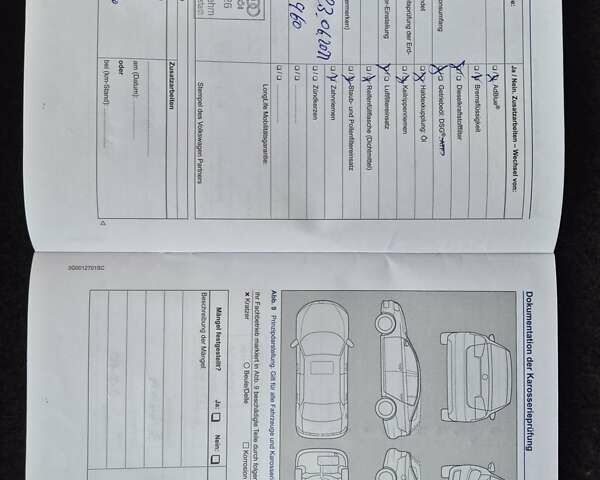 Ja / Nein. Zusatzarbeiten – Wechsel von:
AdBlue®
Bremsflüssigkeit
Dieselkraftstofffilter
Getriebeöl: DSG®
Haldexkupplung: Öl
Keilrippenriemen
Luftfiltereinsatz
Reifenfüllflasche (Dichtmittel)
Staub- und Pollenfiltereinsatz
Zahnriemen
Zündkerzen
LongLife Mobilitätsgarantie:
Stempel des Volkswagen Partners
Zusatzarbeiten
am (Datum):
oder
bei (km-Stand):
3G0012701BC
Dokumentation der Karosserieprüfung
Abb. 9 Prinzipdarstellung. Gilt für alle Fahrzeuge und Karosserien
Ihr Fachbetrieb markiert in Abb. 9 beschädigte Teile durch folgen
× Kratzer
○ Beule/Delle
□ Korrosion
Mängel festgestellt?
Ja:
Nein:
Beschreibung der Mängel